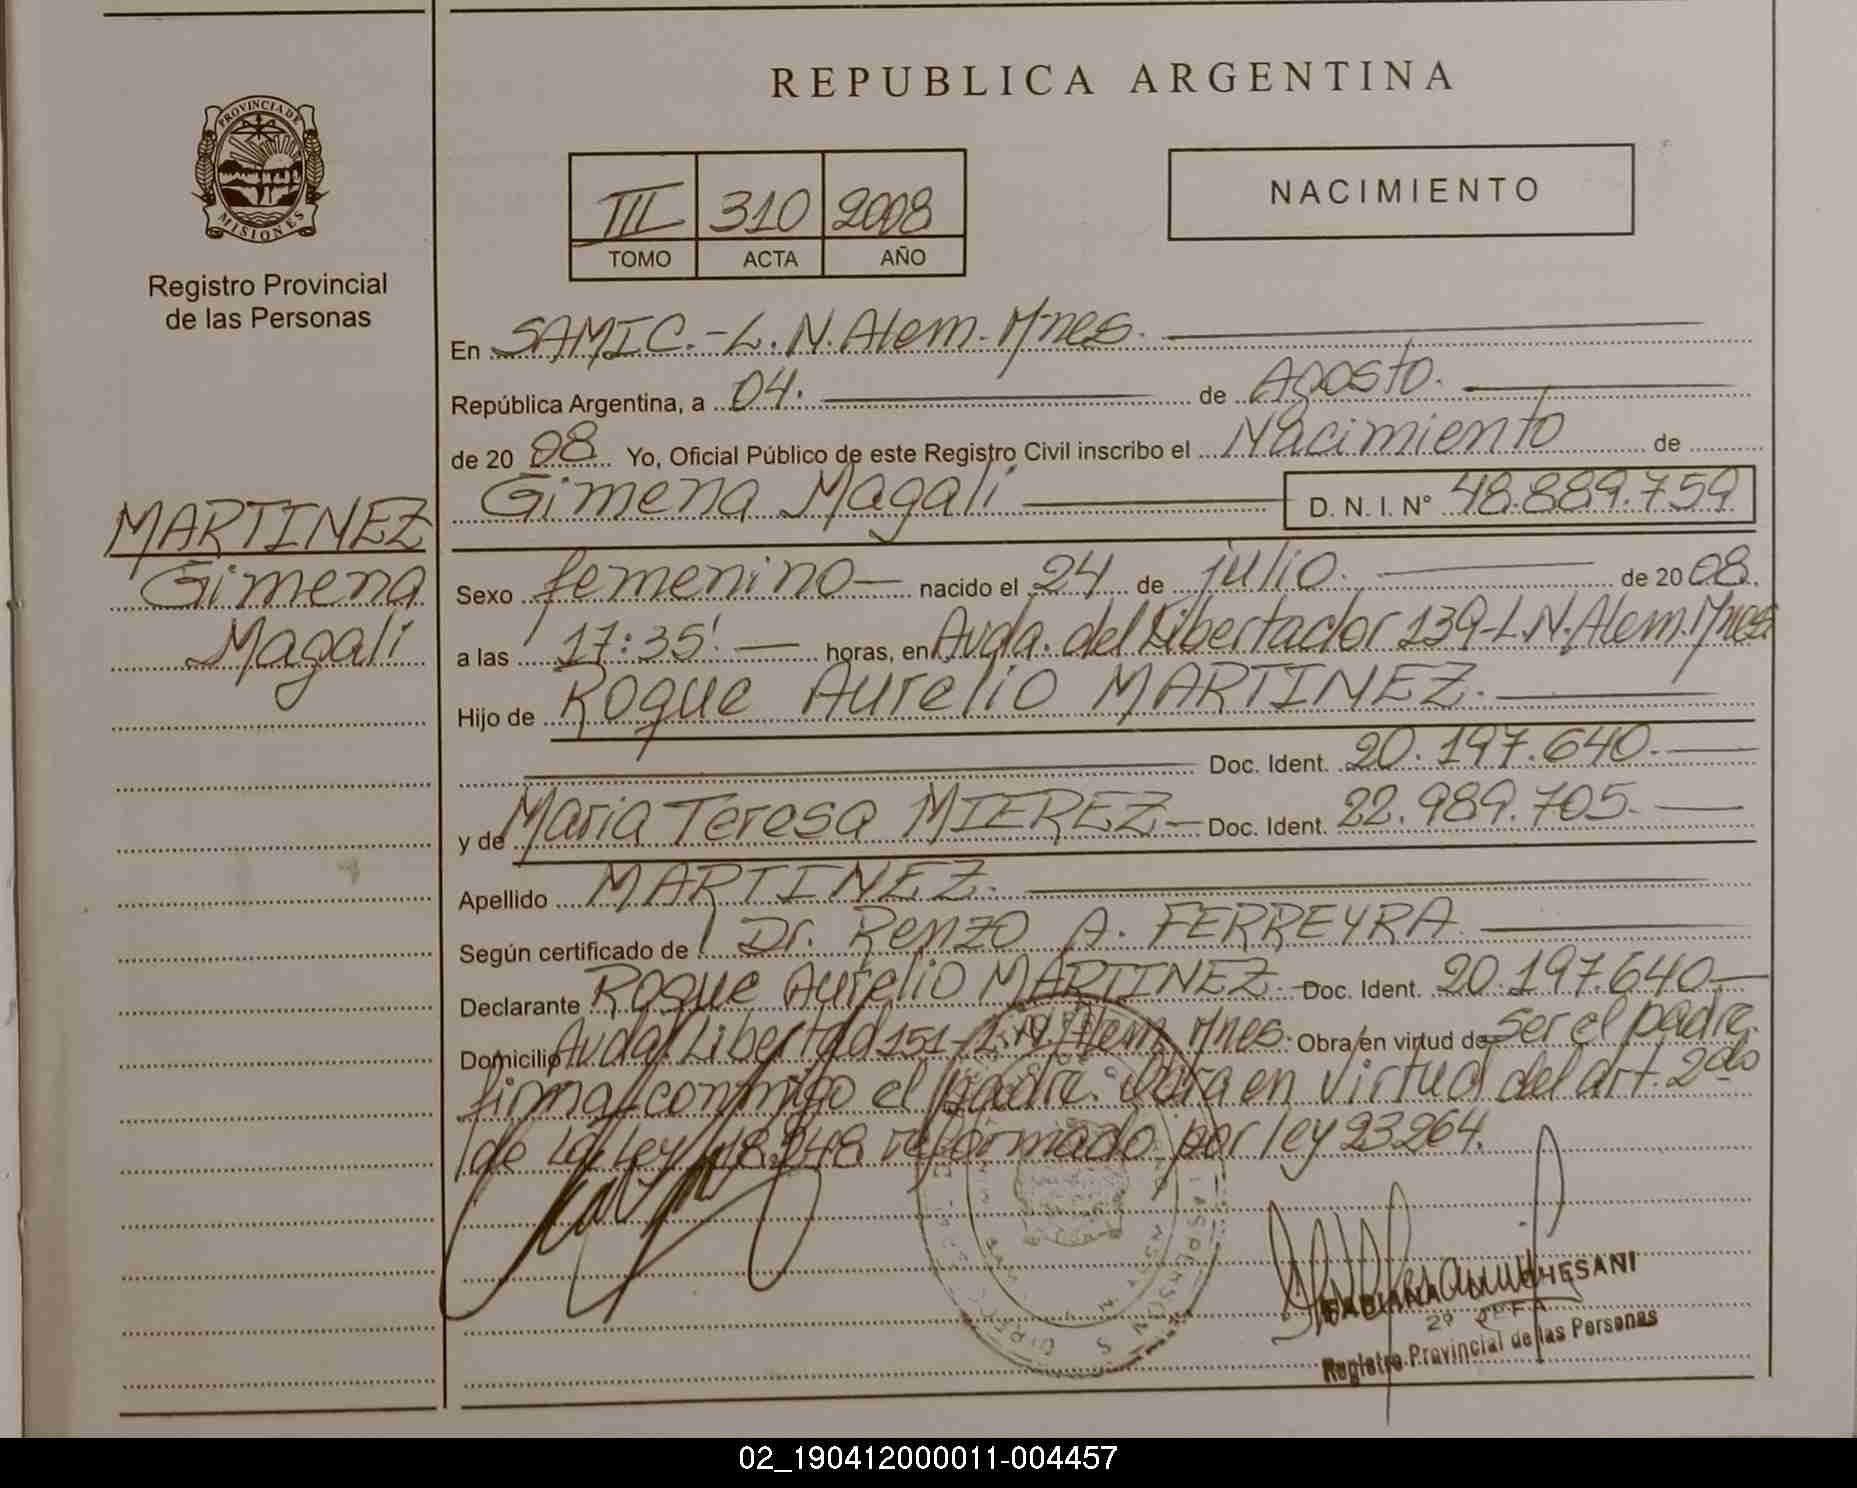 REPUBLICA ARGENTINA
PROVINCIA DE
MISIONES
Registro Provincial
de las Personas
III 310 2008
TOMO ACTA AÑO
NACIMIENTO
MARTINEZ
Gimena
Magali
En SAMIC.-L.N.Alem.Mnes.
República Argentina, a 04. de Agosto.
de 20 08 Yo, Oficial Público de este Registro Civil inscribo el Nacimiento de
Gimena Magali D. N. I. N° 48.889.759
Sexo femenino nacido el 24 de julio. de 20 08.
a las 17:35' horas, en Avda. del Libertador 139-L.N.Alem.Mnes.
Hijo de Roque Aurelio MARTINEZ.
Doc. Ident. 20.197.640.
y de Maria Teresa MIEREZ Doc. Ident. 22.989.705.
Apellido MARTINEZ.
Según certificado de Dr. Renzo A. FERREYRA
Declarante Roque Aurelio MARTINEZ. Doc. Ident. 20.197.640.
Domicilio Avda. Libertad 151-L.N.Alem Mnes. Obra en virtud de ser el padre.
firma conmigo el padre. Obra en virtud del art. 2do
de la Ley 18.248 reformado por ley 23264.
2º JEFA
Registro Provincial de las Personas
02_190412000011-004457